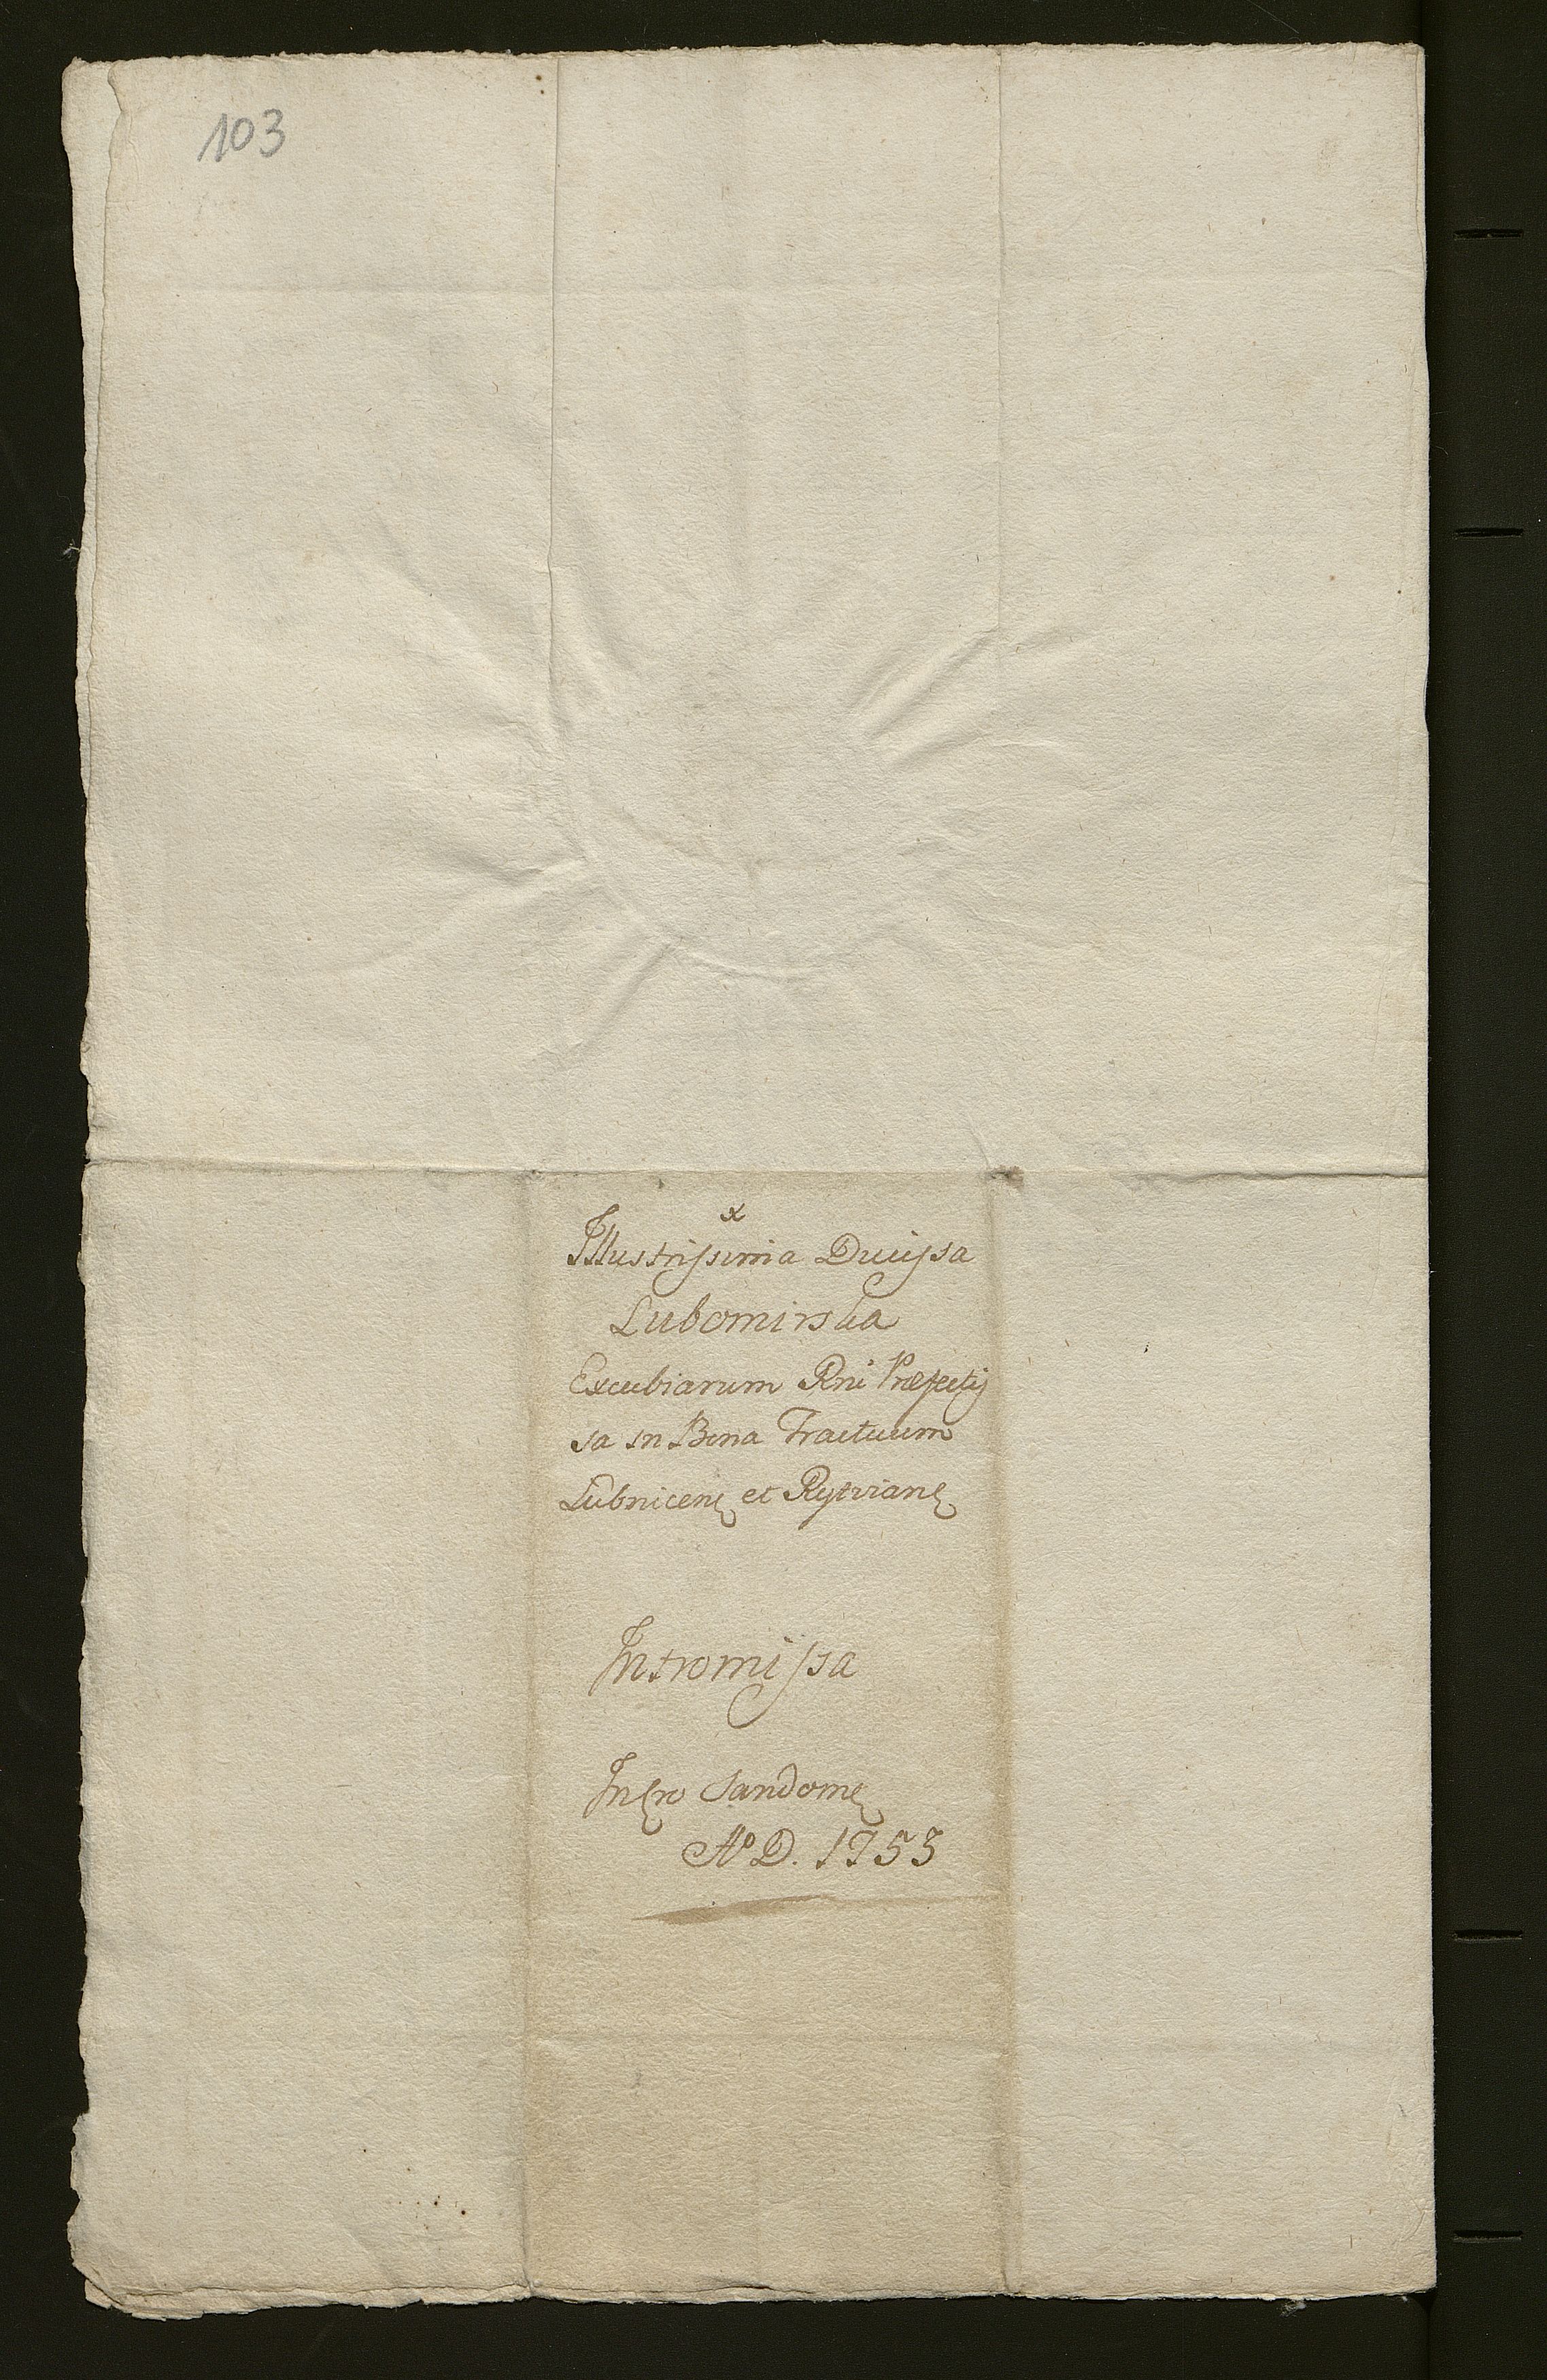 103
x
Illustrissima Ducissa
Lubomirska
Excubiarum Rni Præfectis
sa in Bona Tractuum
Lubnicen̨ et Rytvian̨
Intromissa
Sandom̨
A͞o D. 1753